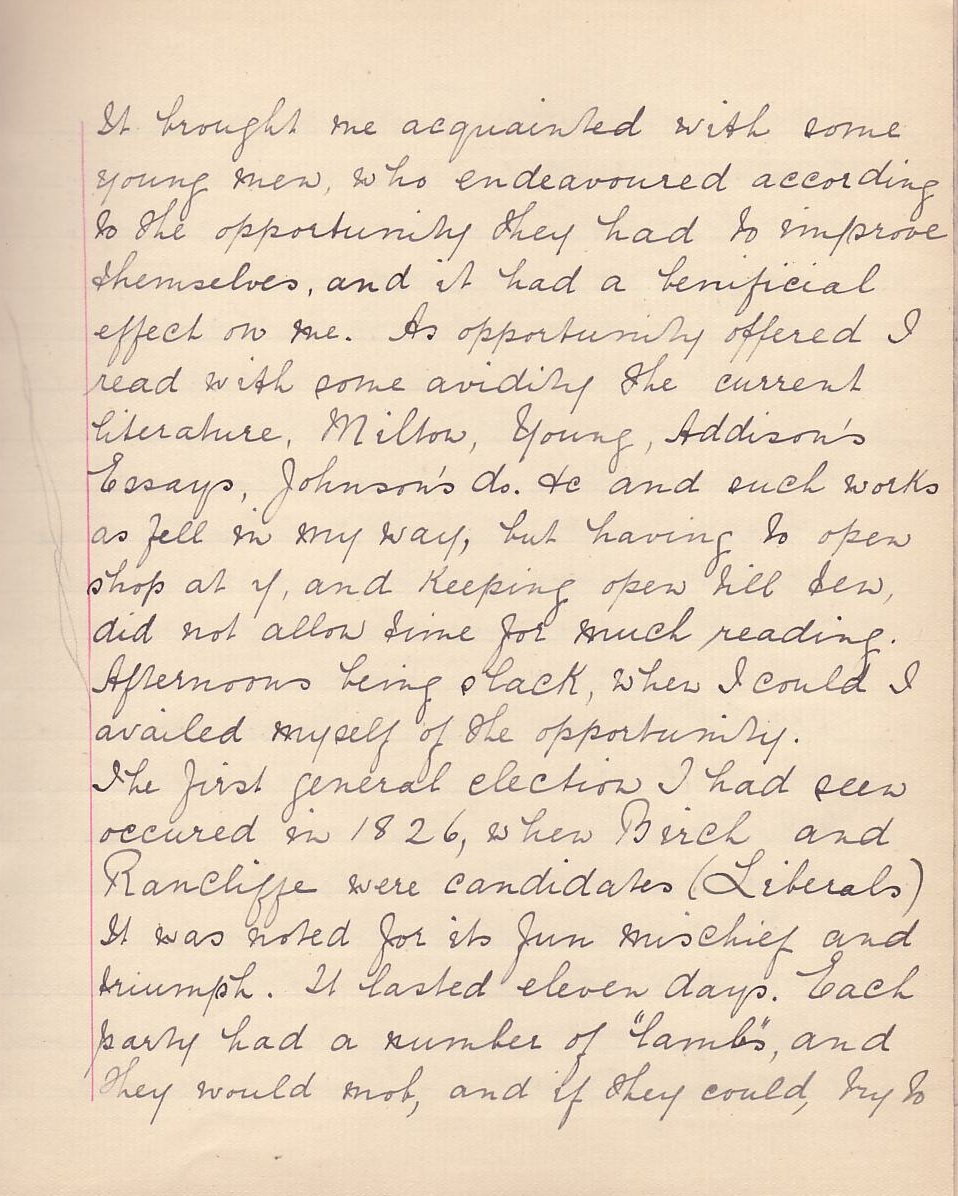 It brought me acquainted with some
young men, who endeavoured according
to the opportunity they had to improve
themselves, and it had a benificial
effect on me. As opportunity offered I
read with some avidity the current
literature, Milton, Young, Addison's
Essays, Johnson's do. &c and such works
as fell in my way, but having to open
shop at 7, and keeping open till ten,
did not allow time for much reading.
Afternoons being slack, when I could I
availed myself of the opportunity.
The first general election I had seen
occured in 1826, when Birch and
Rancliffe were candidates (Liberals)
It was noted for its fun mischief and
triumph. It lasted eleven days. Each
party had a number of "lambs", and
they would mob, and if they could, try to